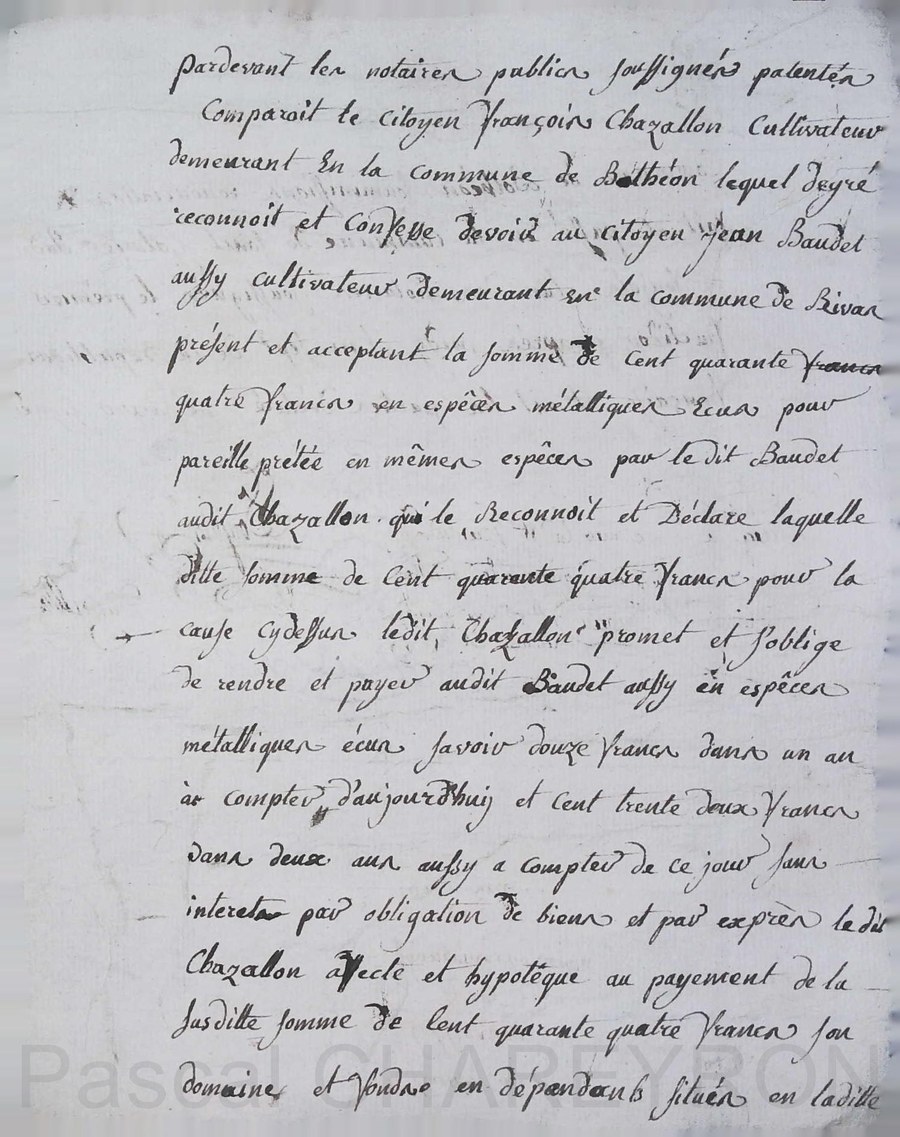 Pardevant les notaires publics soussignés patentés
Comparoit le Citoyen françois Chazallon Cultivateur
demeurant En la commune de Bothéon lequel degré
reconnoit et Confesse devoir au citoyen jean Baudet
aussy cultivateur demeurant en la commune de Rivas
présent et acceptant la somme de Cent quarante francs
quatre francs en espêces métalliques Ecus pour
pareille prétée en mêmes espêces par le dit Baudet
audit Chazallon qui le Reconnoit et Déclare laquelle
ditte somme de Cent quarante quatre francs pour la
cause Cydessus ledit Chazallon promet et s'oblige
de rendre et payer audit Baudet aussy en espêces
métalliques écus savoir douze francs dans un an
a compter d'aujourd'huy et Cent trente deux francs
dans deux ans aussy a compter de ce jour sans
interets par obligation de biens et par exprès le dit
Chazallon affecte et hypotêque au payement de la
susditte somme de Cent quarante quatre francs son
domaine et fonds en dépandants situés en laditte
Pascal CHAREYRON